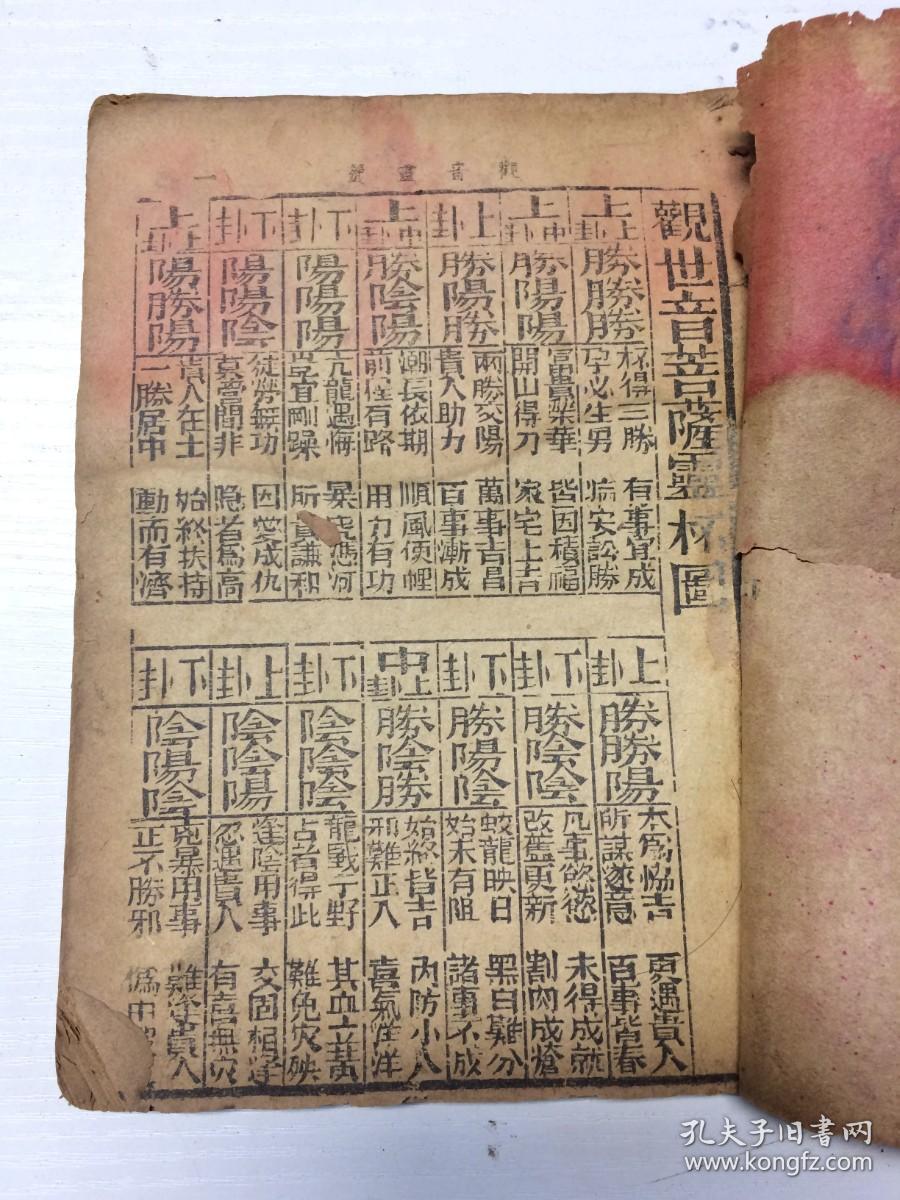 觀音靈籤 一
觀世音菩薩靈杯圖
上上卦
勝勝勝
杯得三勝 有事宜成
孕必生男 病安訟勝
上中卦
勝陽陽
富貴榮華 皆因積福
開山得刀 家宅上吉
上卦
勝陽勝
兩勝交陽 萬事吉昌
貴人助力 百事漸成
上中卦
勝陰陽
潮長依期 順風便
前程有路 用力有功
下卦
陽陽陽
亢龍遇悔 暴虎馮河
豈宜剛躁 所貴謙和
下卦
陽陽陰
徒勞無功 因愛成仇
莫管閒非 隐者為高
上上卦
陽勝陽
貴人在土 始終扶持
一勝居中 動而有濟
上卦
勝勝陽
本為協吉 更遇貴人
所謀遂意 百事皆春
下卦
勝陰陰
凡事欲 未得成就
改舊更新 割肉成
下卦
勝陽陰
蛟龍映日 黑白難分
始未有阻 諸事不成
中上卦
勝陰勝
始終皆吉 內防小人
邪難正入 喜氣洋洋
下卦
陰陰陰
龍戰于野 其血立黃
占者得此 難免灾殃
上卦
陰陰陽
陰用事 交固相
忽遇貴人 有意無灾
下卦
陰陽陰
兇暴用事 難逢貴人
正不勝邪
孔夫子旧书网
www.kongfz.com